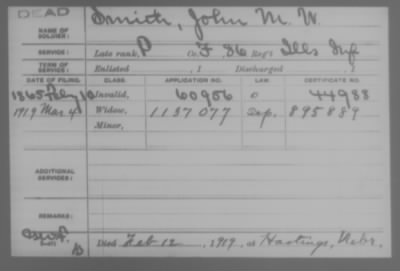 DEAD
NAME OF SOLDIER: Smith, John M. W.
SERVICE: Late rank, P Co. F, 36 Reg't Ills Inf
TERM OF SERVICE: Enlisted , 1 Discharged , 1
DATE OF FILING. CLASS. APPLICATION NO. LAW. CERTIFICATE NO.
1865 July 10 Invalid, 60906 0 44988
1919 Mar. 4 Widow, 1137077 Sep. 895889
Minor,
ADDITIONAL SERVICES:
REMARKS:
Died Feb 12, 1919, at Hastings, Nebr.